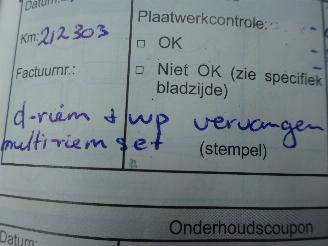 Datum:
Plaatwerkcontrole:
Km: 212303
□ OK
Factuurnr.:
□ Niet OK (zie specifiek
bladzijde)
d-riem + wp vervangen
multiriem set
(stempel)
Onderhoudscoupon
Datum: